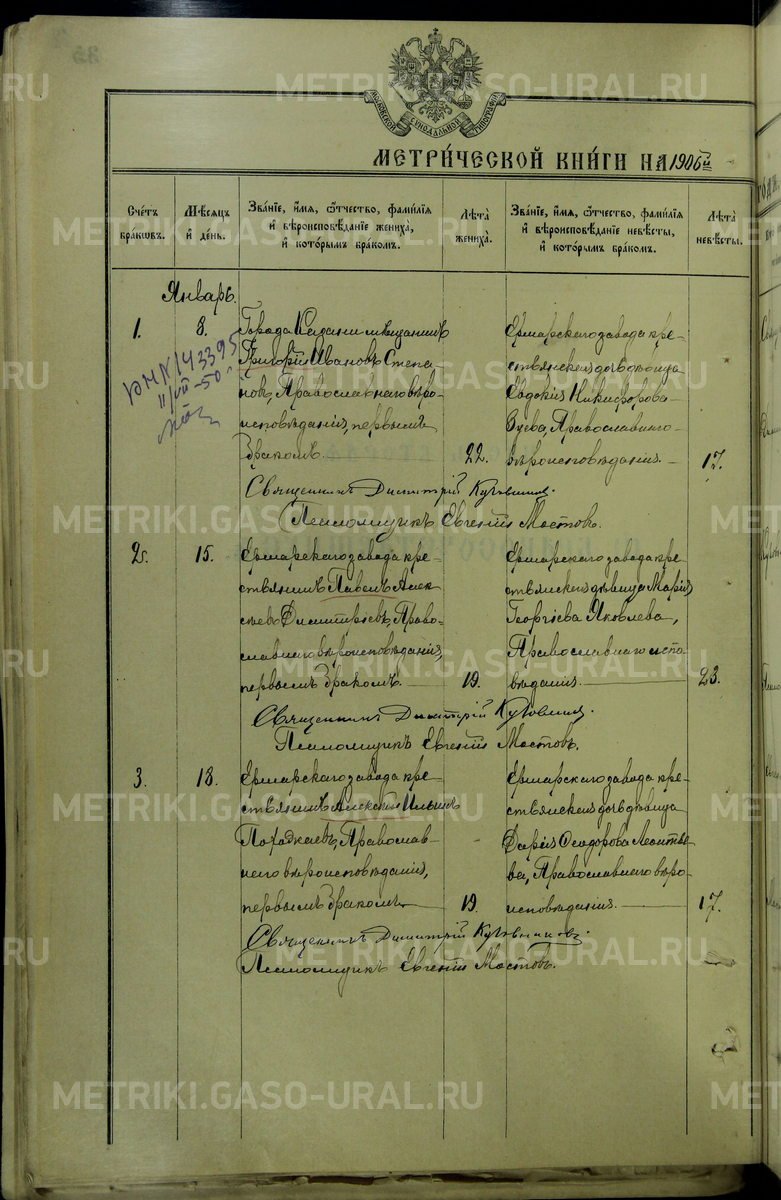 МОСКОВСКОЙ СѴНОДАЛЬНОЙ ТИПОГРАФІИ
МЕТРИ́ЧЕСКОЙ КНИ́ГИ НА 1906й
Сче́тъ бра́кωвъ.
Мѣ́сяцъ и҆ де́нь.
Зва́нїе, и҆́мя, ѻ҆́тчество, фами́лїя
и҆ вѣроисповѣ́данїе жениха̀,
и҆ кото́рымъ бра́комъ.
Лѣта̀ жениха̀.
Зва́нїе, и҆́мя, ѻ҆́тчество, фами́лїя
и҆ вѣроисповѣ́данїе невѣ́сты,
и҆ кото́рымъ бра́комъ.
Лѣта̀ невѣ́сты.
Январь.
1.
8.
Города Казани мѣщанинъ
Григорій Ивановъ Степа-
новъ, Православнаго вѣро-
исповѣданія, первымъ
бракомъ.
22.
крестьянская дочь дѣвица
Евдокія Никифорова
Зуева, Православнаго
вѣроисповѣданія.
17.
№ 143395
11/VII-50
Священникъ Димитрій
Псаломщикъ Евгеній Мостовъ.
2.
15.
завода кре-
стьянинъ Павелъ Алек-
сѣевъ Димитріевъ, Право-
славнаго вѣроисповѣданія,
первымъ бракомъ.
19.
завода кре-
стьянская дѣвица Марія
Георгіева Яковлева,
Православнаго испо-
вѣданія.
23.
Священникъ Димитрій
Псаломщикъ Евгеній Мостовъ.
3.
18.
завода кре-
стьянинъ Алексѣй Ильинъ
Православ-
наго вѣроисповѣданія,
первымъ бракомъ.
19.
завода кре-
стьянская дочь дѣвица
Дарія Ѳеодорова Леонтье-
ва, Православнаго вѣро-
исповѣданія.
17.
Священникъ Димитрій
Псаломщикъ Евгеній Мостовъ.
METRIKI.GASO-URAL.RU